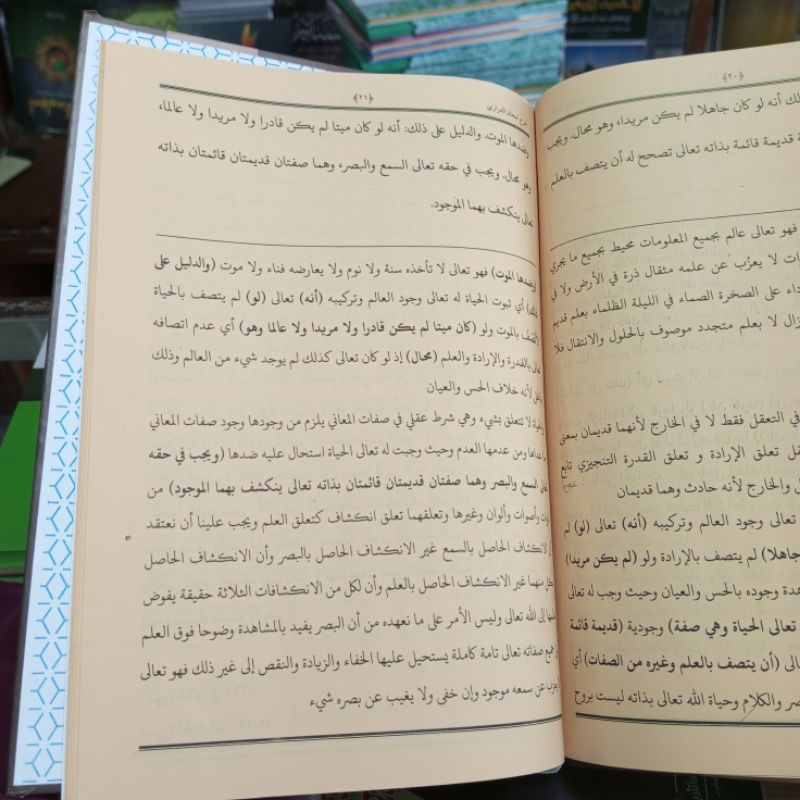 ﴿٢٠﴾
لك أنه لو كان جاهلا لم يكن مريدا، وهو محال. ويجب
قديمة قائمة بذاته تعالى تصحح له أن يتصف بالعلم
فهو تعالى عالم بجميع المعلومات محيط بجميع ما يجري
لا يعزُب عن علمه مثقال ذرة في الأرض ولا في
على الصخرة الصماء في الليلة الظلماء بعلم قديم
لا بعلم متجدد موصوف بالحلول والانتقال فلا
في التعقل فقط لا في الخارج لأنهما قديمان بمعنى
تعلق الإرادة و تعلق القدرة التنجيزي تابع
والخارج لأنه حادث وهما قديمان
تعالى وجود العالم وتركيبه (أنه) تعالى (لو) لم
جاهلا) لم يتصف بالإرادة ولو (لم يكن مريدا)
وجوده بالحس والعيان وحيث وجب له تعالى
تعالى الحياة وهي صفة) وجودية (قديمة قائمة
(أن يتصف بالعلم وغيره من الصفات) أي
والكلام وحياة الله تعالى بذاته ليست بروح
﴿٢١﴾
شرح تيجان الدراري
وضدها الموت. والدليل على ذلك: أنه لو كان ميتا لم يكن قادرا ولا مريدا ولا عالما،
وهو محال. ويجب في حقه تعالى السمع والبصر، وهما صفتان قديمتان قائمتان بذاته
تعالى ينكشف بهما الموجود.
(وضدها الموت) فهو تعالى لا تأخذه سنة ولا نوم ولا يعارضه فناء ولا موت (والدليل على
ذلك) أي ثبوت الحياة له تعالى وجود العالم وتركيبه (أنه) تعالى (لو) لم يتصف بالحياة
بالموت ولو (كان ميتا لم يكن قادرا ولا مريدا ولا عالما وهو) أي عدم اتصافه
تعالى بالقدرة والإرادة والعلم (محال) إذ لو كان تعالى كذلك لم يوجد شيء من العالم وذلك
لأنه خلاف الحس والعيان
لا تتعلق بشيء وهي شرط عقلي في صفات المعاني يلزم من وجودها وجود صفات المعاني
ومن عدمها العدم وحيث وجبت له تعالى الحياة استحال عليه ضدها (ويجب في حقه
تعالى السمع والبصر وهما صفتان قديمتان قائمتان بذاته تعالى ينكشف بهما الموجود) من
وأصوات وألوان وغيرها وتعلقهما تعلق انكشاف كتعلق العلم ويجب علينا أن نعتقد
الانكشاف الحاصل بالسمع غير الانكشاف الحاصل بالبصر وأن الانكشاف الحاصل
منهما غير الانكشاف الحاصل بالعلم وأن لكل من الانكشافات الثلاثة حقيقة يفوض
إلى الله تعالى وليس الأمر على ما نعهده من أن البصر يفيد بالمشاهدة وضوحا فوق العلم
جميع صفاته تعالى تامة كاملة يستحيل عليها الخفاء والزيادة والنقص إلى غير ذلك فهو تعالى
عن سمعه موجود وإن خفى ولا يغيب عن بصره شيء